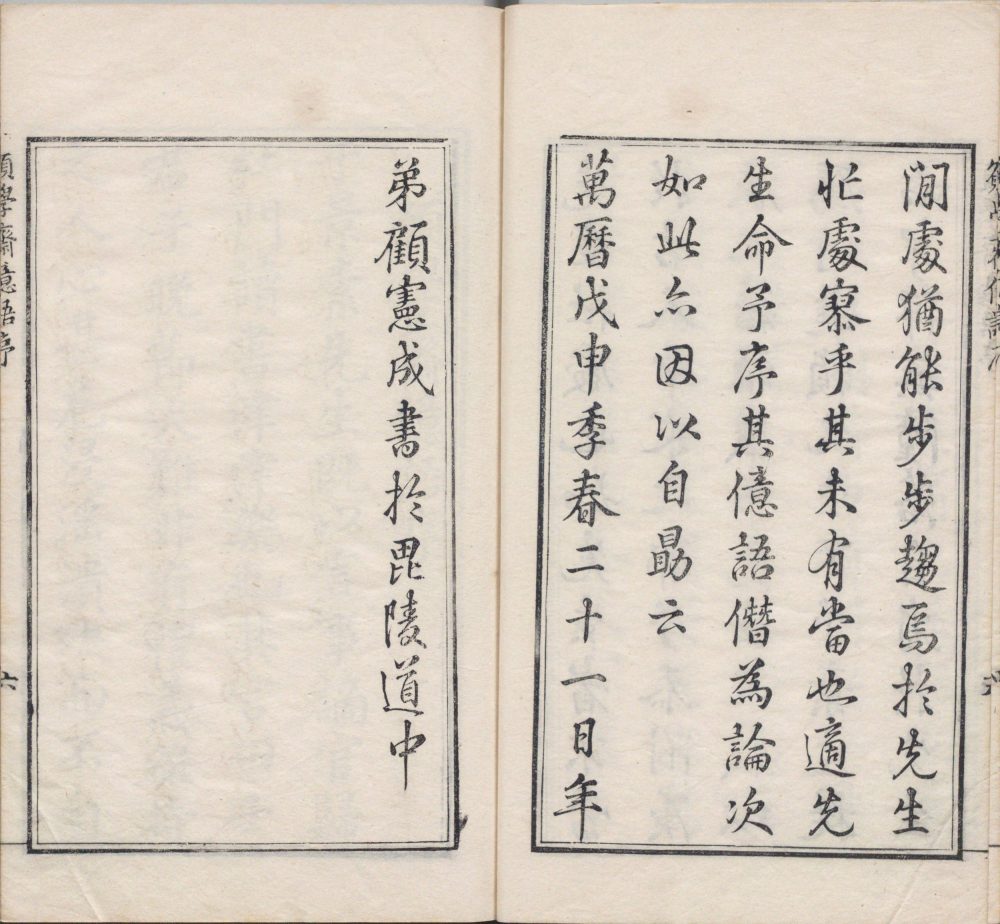 閒處猶能步步趨焉於先生
忙處寡乎其未有當也適先
生命予序其億語僭為論次
如此亦因以自勗云
萬曆戊申季春二十一日年
弟顧憲成書於毘陵道中
願學齋億語序
六